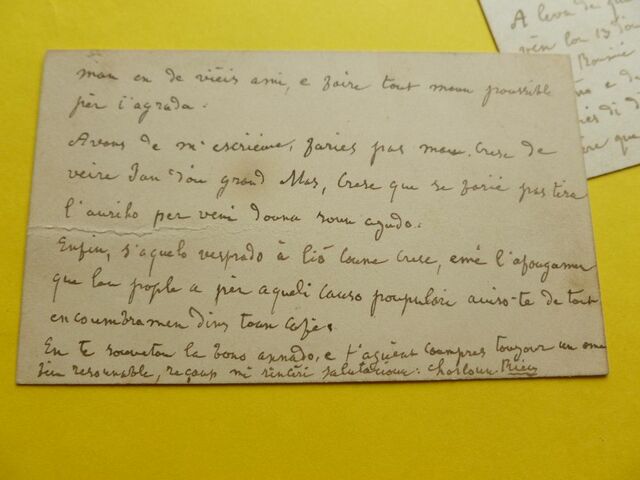 man en de vièis ami, e faire tout moun poussible
pèr i'agrada.
Avans de m'escriéure, fariés pas mau. Crese de
veire Jan dóu grand Mas, Crese que se farié pas tira
l'auriho per veni douna soun ajudo.
Enfin, s'aquelo vesprado à liò coume crese, emé l'afougamen
que lou pople a pèr aqueli causo poupulàri aviso-te de tout
encoumbramen dins toun Cafè.
En te souvetan la bono annado, e t'aguent coumpres toujour un ome
bèn resounable, reçaup mi sincèri salutacioun: Charloun Rieu
A leva de
vèn lou 13 
e d
que